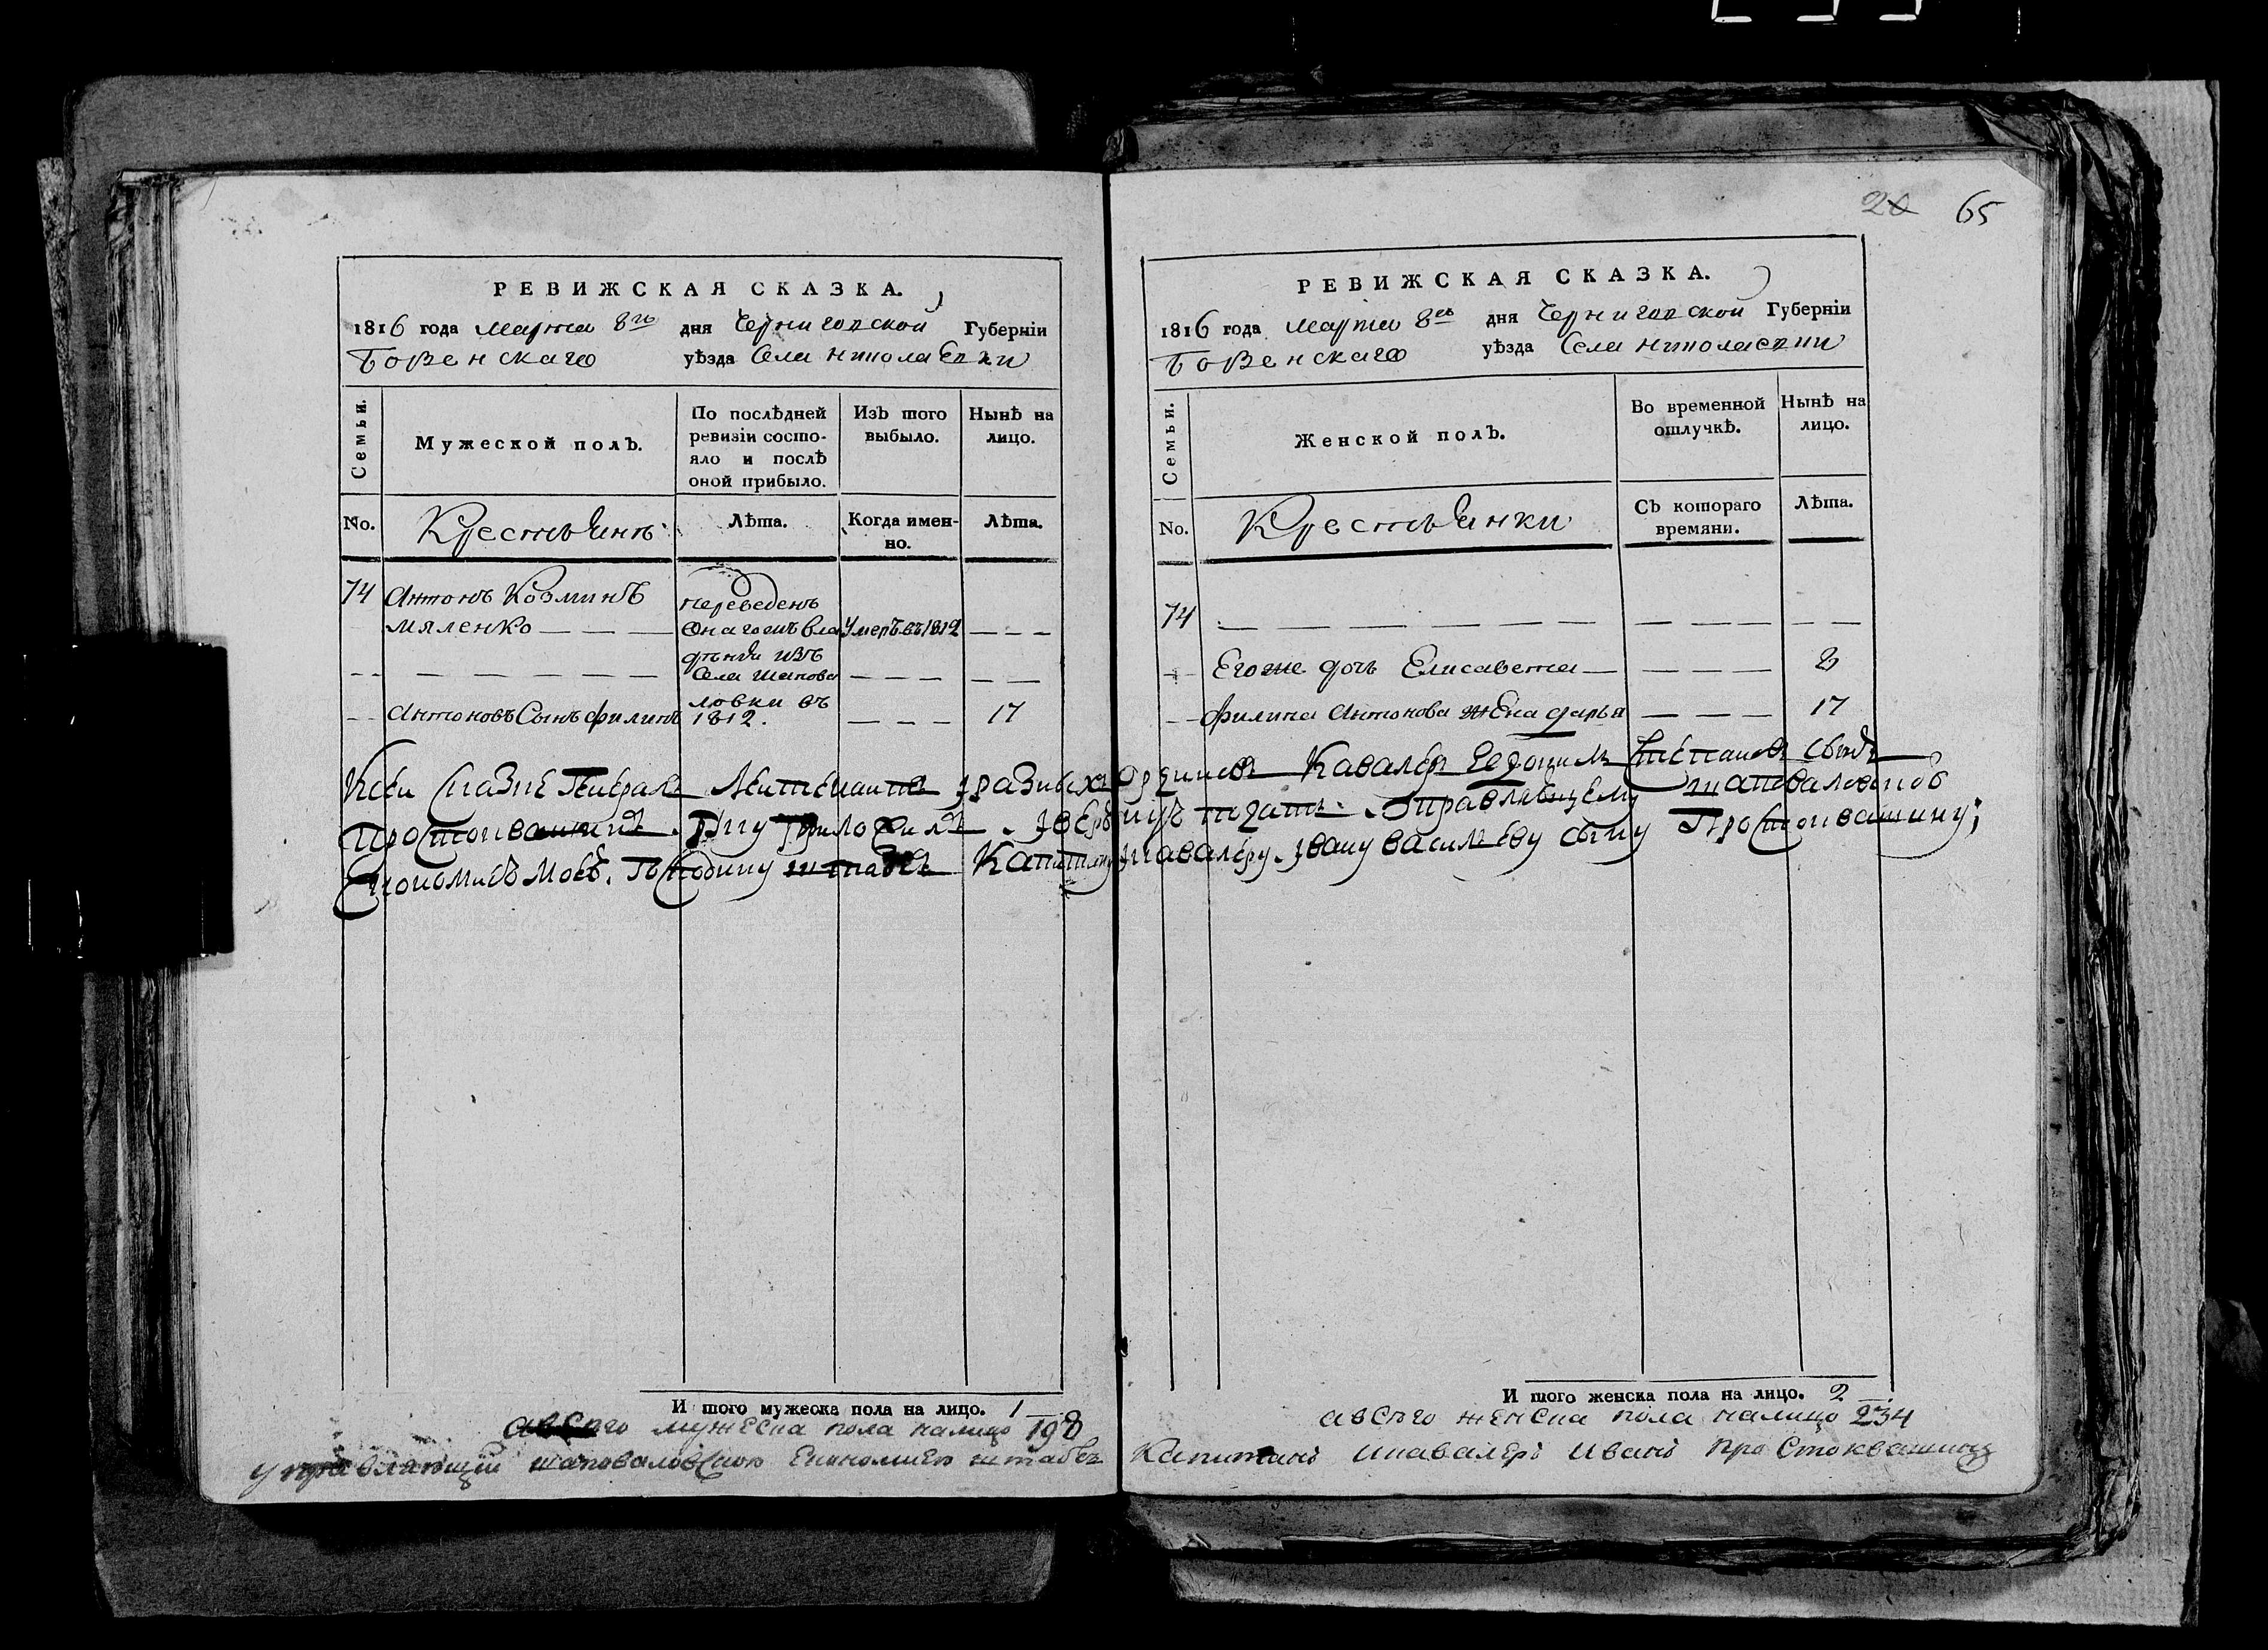 20 65
РЕВИЖСКАЯ СКАЗКА.
1816 года марта 8го дня Черниговской Губерніи
Борзенскаго уѣзда Села Николаевки
Семьи.
Мужеской полъ.
По послѣдней ревизіи состояло и послѣ оной прибыло.
Изъ того выбыло.
Нынѣ на лицо.
No.
Крестьянъ
Лѣта.
Когда именно.
Лѣта.
74 Антонъ Козминъ
мяленко
переведенъ
онагожъ вла
дѣнія изъ
Села шапова
ловки въ
1812.
Умеръ въ 1812
Антоновъ Сынъ филипъ
17
РЕВИЖСКАЯ СКАЗКА.
1816 года марта 8го дня Черниговской Губерніи
Борзенскаго уѣзда Села Николаевки
Семьи.
Женской полъ.
Во временной отлучкѣ.
Нынѣ на лицо.
No.
Крестьянки
Съ котораго времяни.
Лѣта.
74
Егоже дочь Елисавета
Филипа Антонова жена дарья 17
Ксей Сказке Генералъ Лейтенантъ иразныхъ Орденовъ Кавалеръ Степановъ сынъ
руку приложилъ управляющему шаповаловкою
Економиею моею. Господину штабсъ Капитану икавалеру. ивану васильеву сыну Простоквашину;
И того мужеска пола на лицо. 1
авсего мужеска пола налицо 198
И того женска пола на лицо. 2
авсего женска пола налицо 234
управляющій шаповаловскою Економиею штабсъ Капитанъ икавалеръ иванъ Простоквашинъ